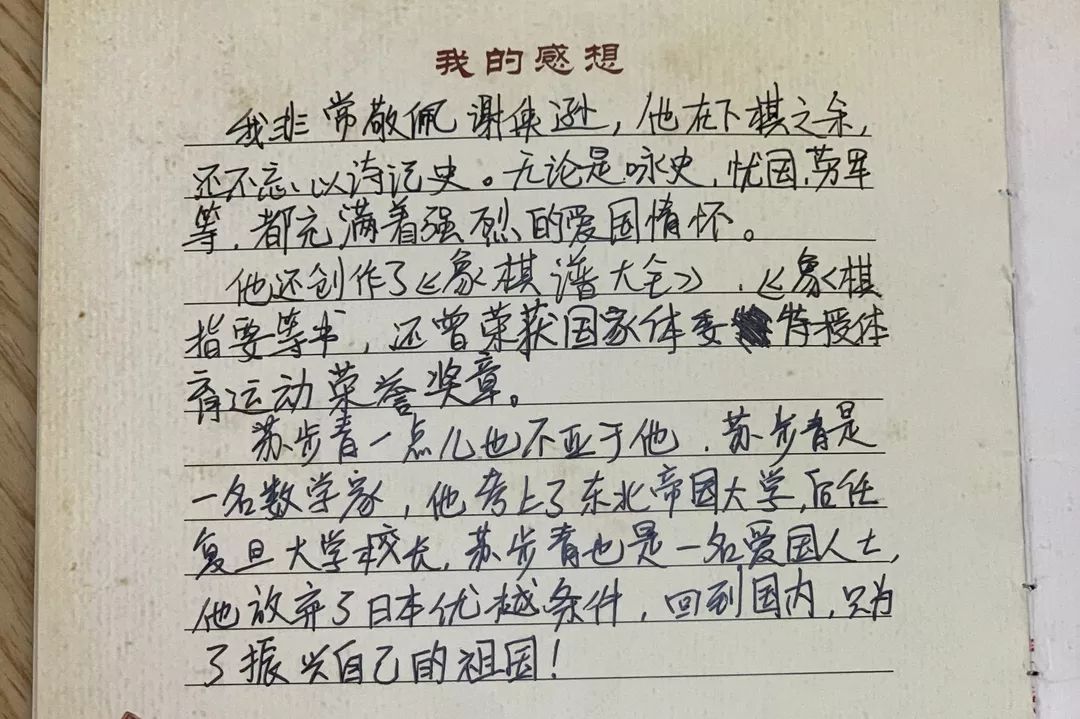 我的感想
我非常敬佩谢侠逊，他在下棋之余，
还不忘、以诗记史。无论是咏史，忧国，劳军
等，都充满着强烈的爱国情怀。
他还创作了《象棋谱大全》、《象棋
指要等书，还曾荣获国家体委特授体
育运动荣誉奖章。
苏步青一点儿也不亚于他，苏步青是
一名数学家，他考上了东北帝国大学，后任
复旦大学校长，苏步青也是一名爱国人士，
他放弃了日本优越条件，回到国内，只为
了振兴自己的祖国！